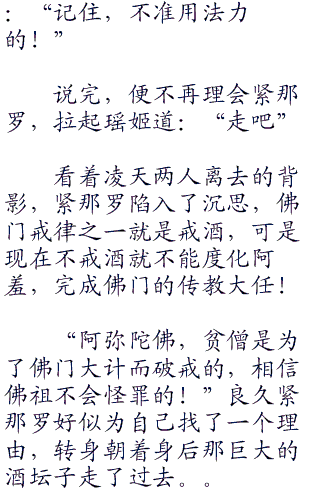 ：“记住，不准用法力
的！”
说完，便不再理会紧那
罗，拉起瑶姬道：“走吧”
看着凌天两人离去的背
影，紧那罗陷入了沉思，佛
门戒律之一就是戒酒，可是
现在不戒酒就不能度化阿
羞，完成佛门的传教大任！
“阿弥陀佛，贫僧是为
了佛门大计而破戒的，相信
佛祖不会怪罪的！”良久紧
那罗好似为自己找了一个理
由，转身朝着身后那巨大的
酒坛子走了过去。。